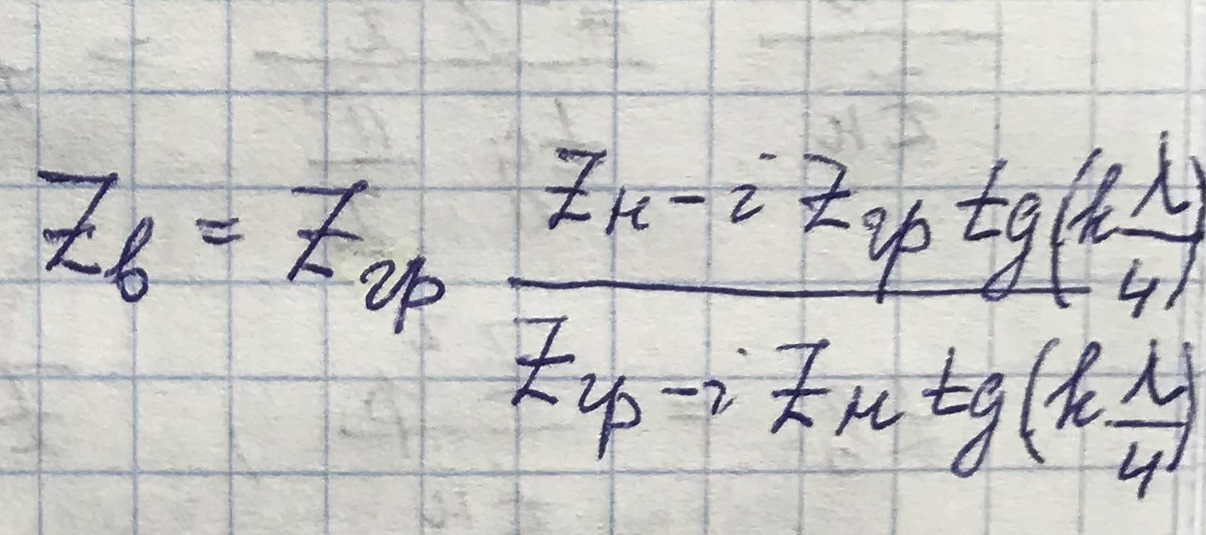 Zв = Zгр (Zн - i Zгр tg(k λ/4)) / (Zгр - i Zн tg(k λ/4))